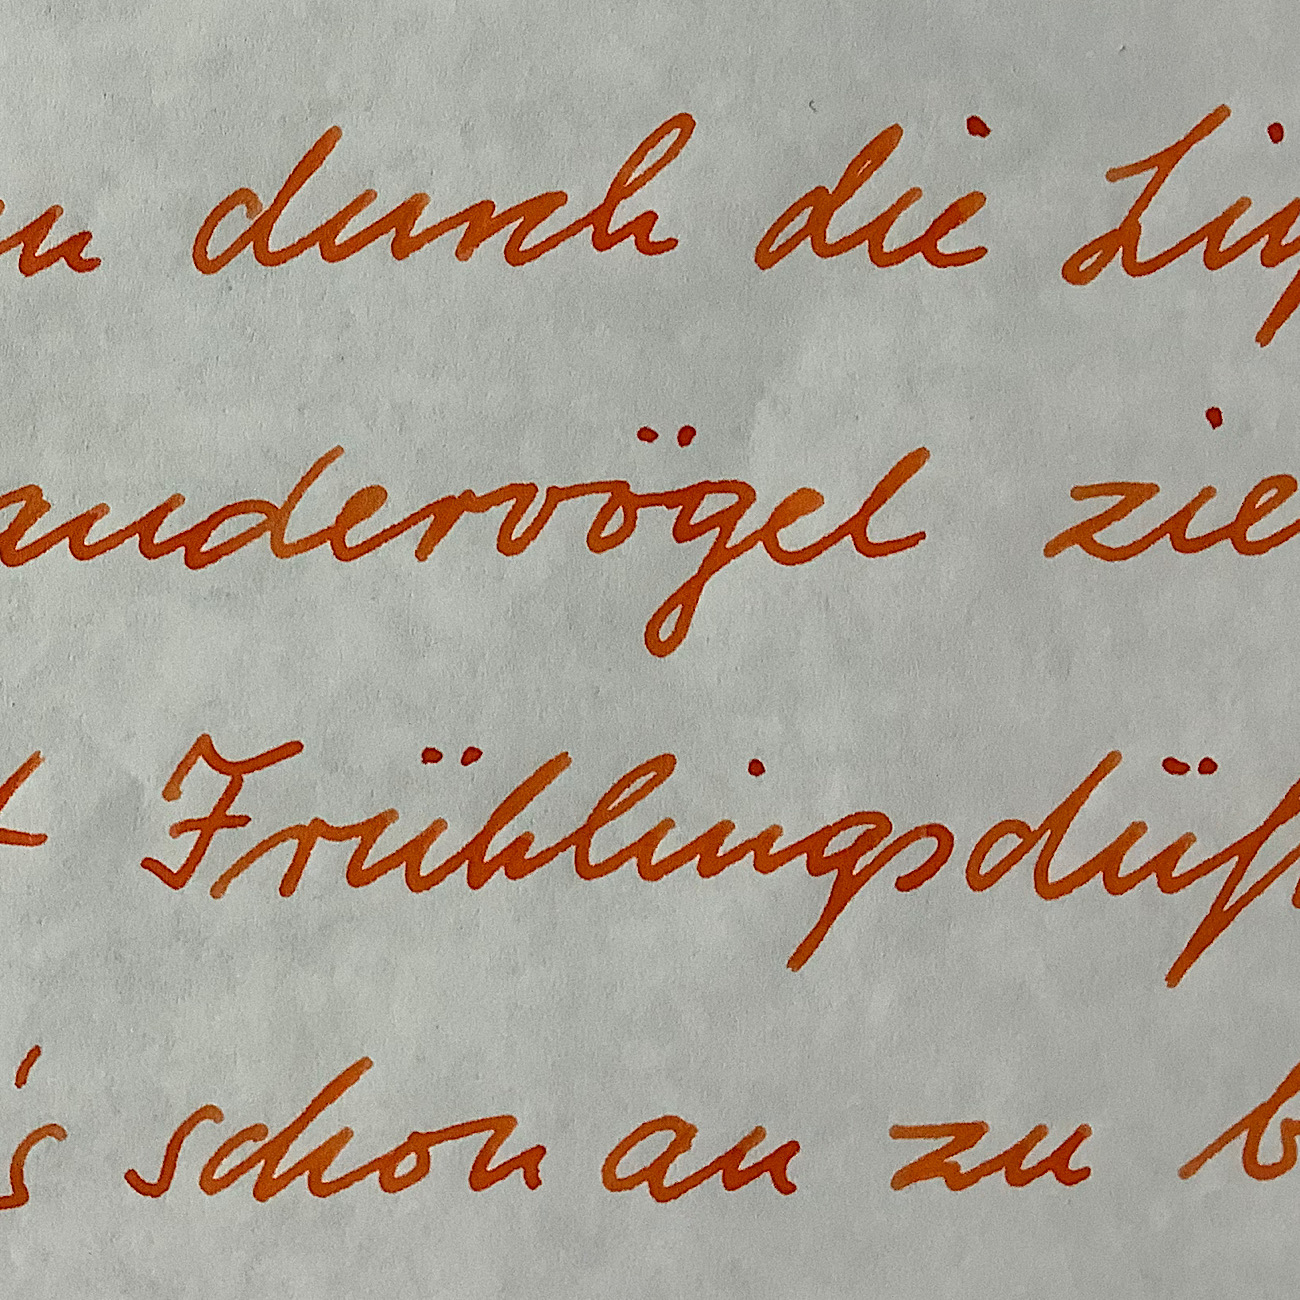 en durch die Lüf
andervögel zie
t Frühlingsdüf
's schon an zu b